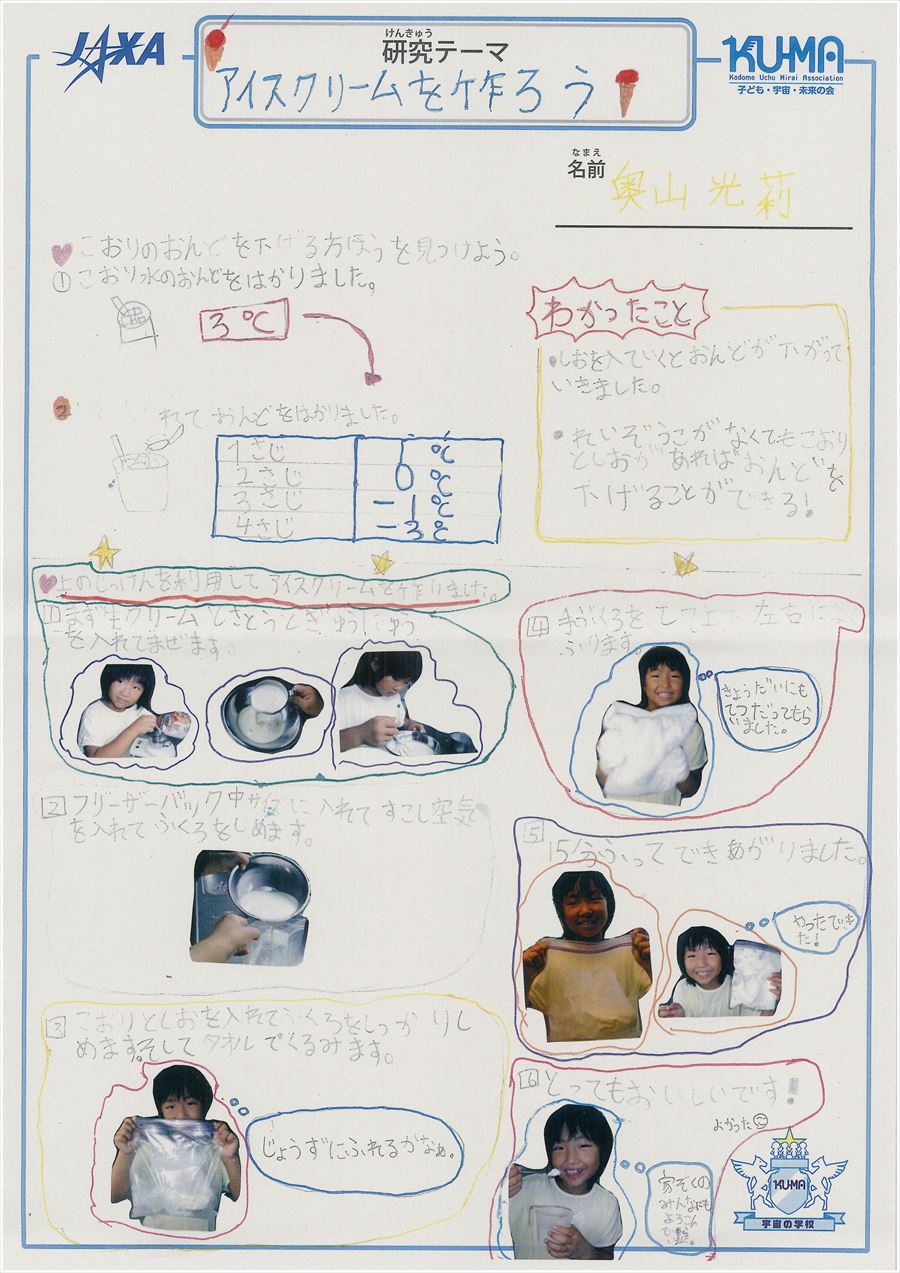 JAXA
けんきゅう
研究テーマ
アイスクリームを作ろう
KU-MA
Kodomo Uchu Mirai Association
子ども・宇宙・未来の会
なまえ
名前 奥山 光莉
こおりのおんどを下げる方ほうを見つけよう。
①こおり水のおんどをはかりました。
3℃
2
れて おんどをはかりました。
1さじ 1℃
2さじ 0℃
3さじ -1℃
4さじ -3℃
わかったこと
•しおを入ていくとおんどが下がって
いきました。
•れいぞうこがなくてもこおり
としおがあれば おんどを
下げることができる!
上のじっけんを利用して アイスクリームを作りました。
1 まず生クリームとさとうとぎゅうにゅう
を入れてまぜます。
2 フリーザーバック中サイズに入れて すこし空気
を入れて ふくろをしめます。
3 こおりとしおを入れてふくろをしっかりし
めます。そして タオルでくるみます。
じょうずにふれるかなぁ。
4 手ぶくろをして上 左右に
ふります。
きょうだいにも
てつだってもら
いました。
5
15分ふって できあがりました。
やったでき
た!
6 とってもおいしいです!
よかった
家ぞくの
みんなにも
よろこん
KU-MA
宇宙の学校